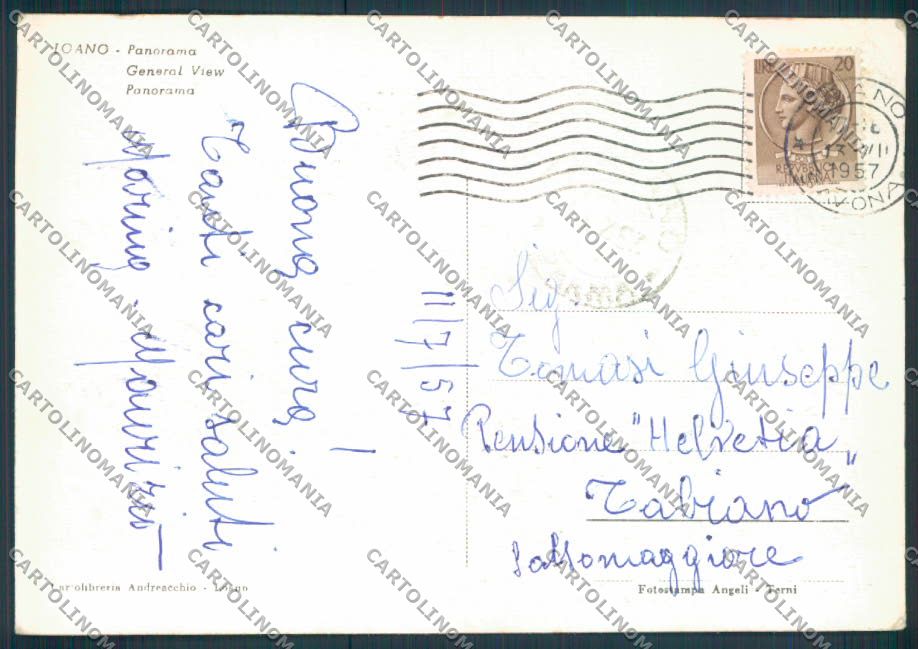 LOANO - Panorama
General View
Panorama
Buona cura!
Tanti cari saluti
Marino Maurizio
11/7/57
Sig.
Tomasi Giuseppe
Pensione "Helvetia"
Tabiano
Salsomaggiore
LIRE 20
REPVBBLICA
ITALIANA
1957
Cartolibreria Andreacchio - Loano
Fotostampa Angeli - Terni
CARTOLINOMANIA